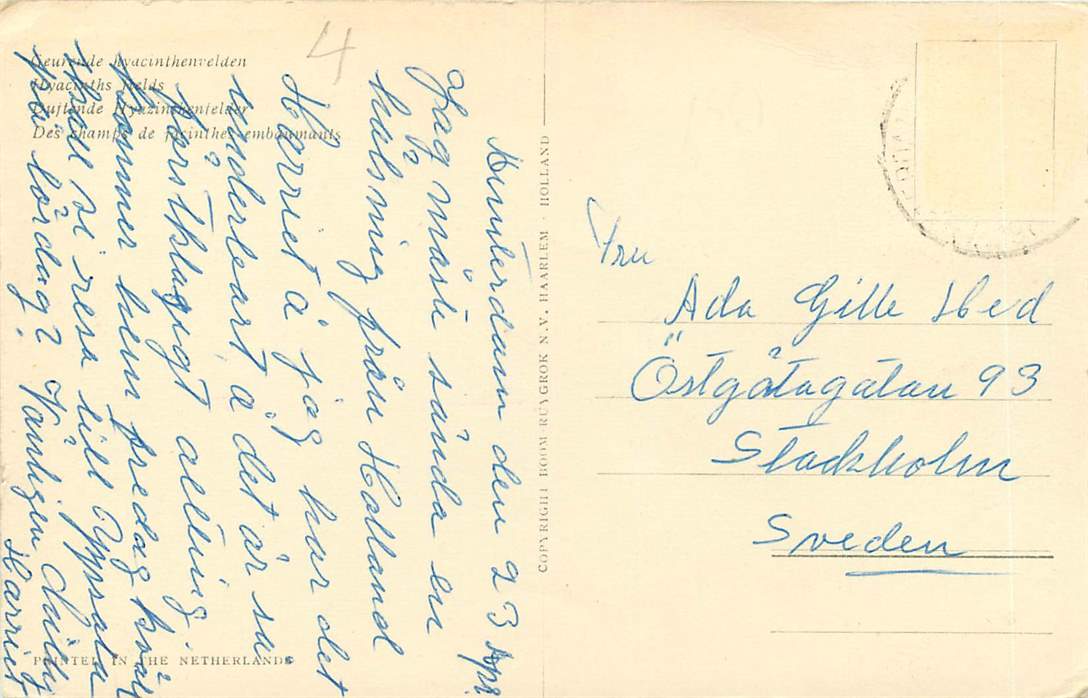 4
Geurende hyacinthenvelden
Hyacinths fields
Duftende Hyazinthenfelder
Des champs de jacinthes embaumants
den 23 Apr.
Jag måste sända en
hälsning från Holland
Harriet å jag har det
underbart å det är så
förstklasigt allting.
Kommer hem fredag kväll
skall vi resa till Uppsala
på lördag? Vänligen
Harriet
COPYRIGHT BOOM-RUYGROK N.V. HAARLEM - HOLLAND
PRINTED IN THE NETHERLANDS
Fru
Ada Gille Hed
Östgötagatan 93
Stockholm
Sveden